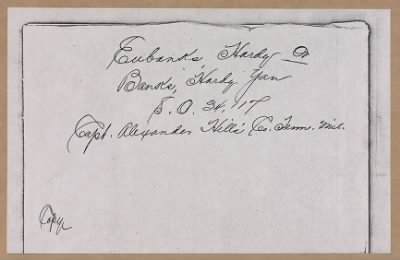 Eubanks, Hardy or
Banks, Hardy
S. O. 34,117
Capt. Alexander Hill's Co. Tenn. Mil.
Copy